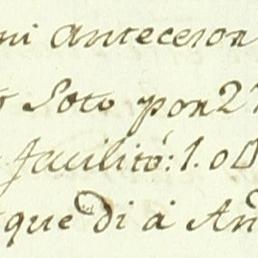 mi Antecesor
Soto por 2
facilitó: 1.00
que di á An